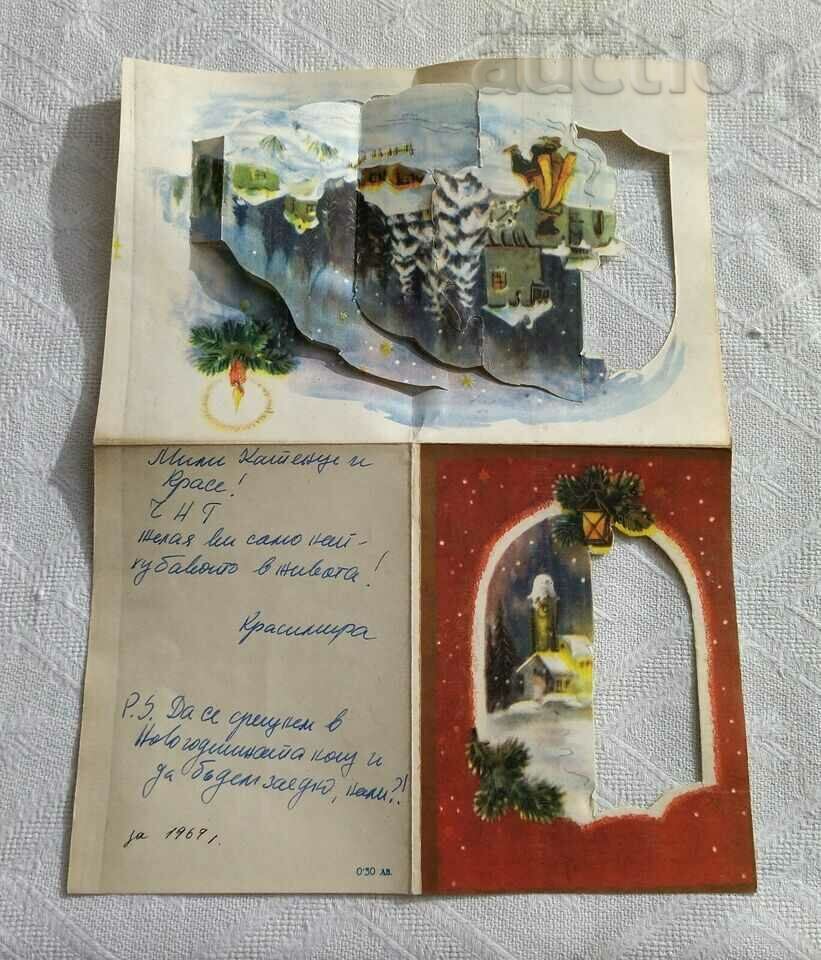 BALKAN
auction
Мили Катенце и
Красе!
Ч Н Г
желая ви само най-
хубавото в живота!
Красимира
P.S. Да се срещнем в
Новогодишната нощ и
да бъдем заедно, нали?!
за 1969 г.
0'30 ЛВ.